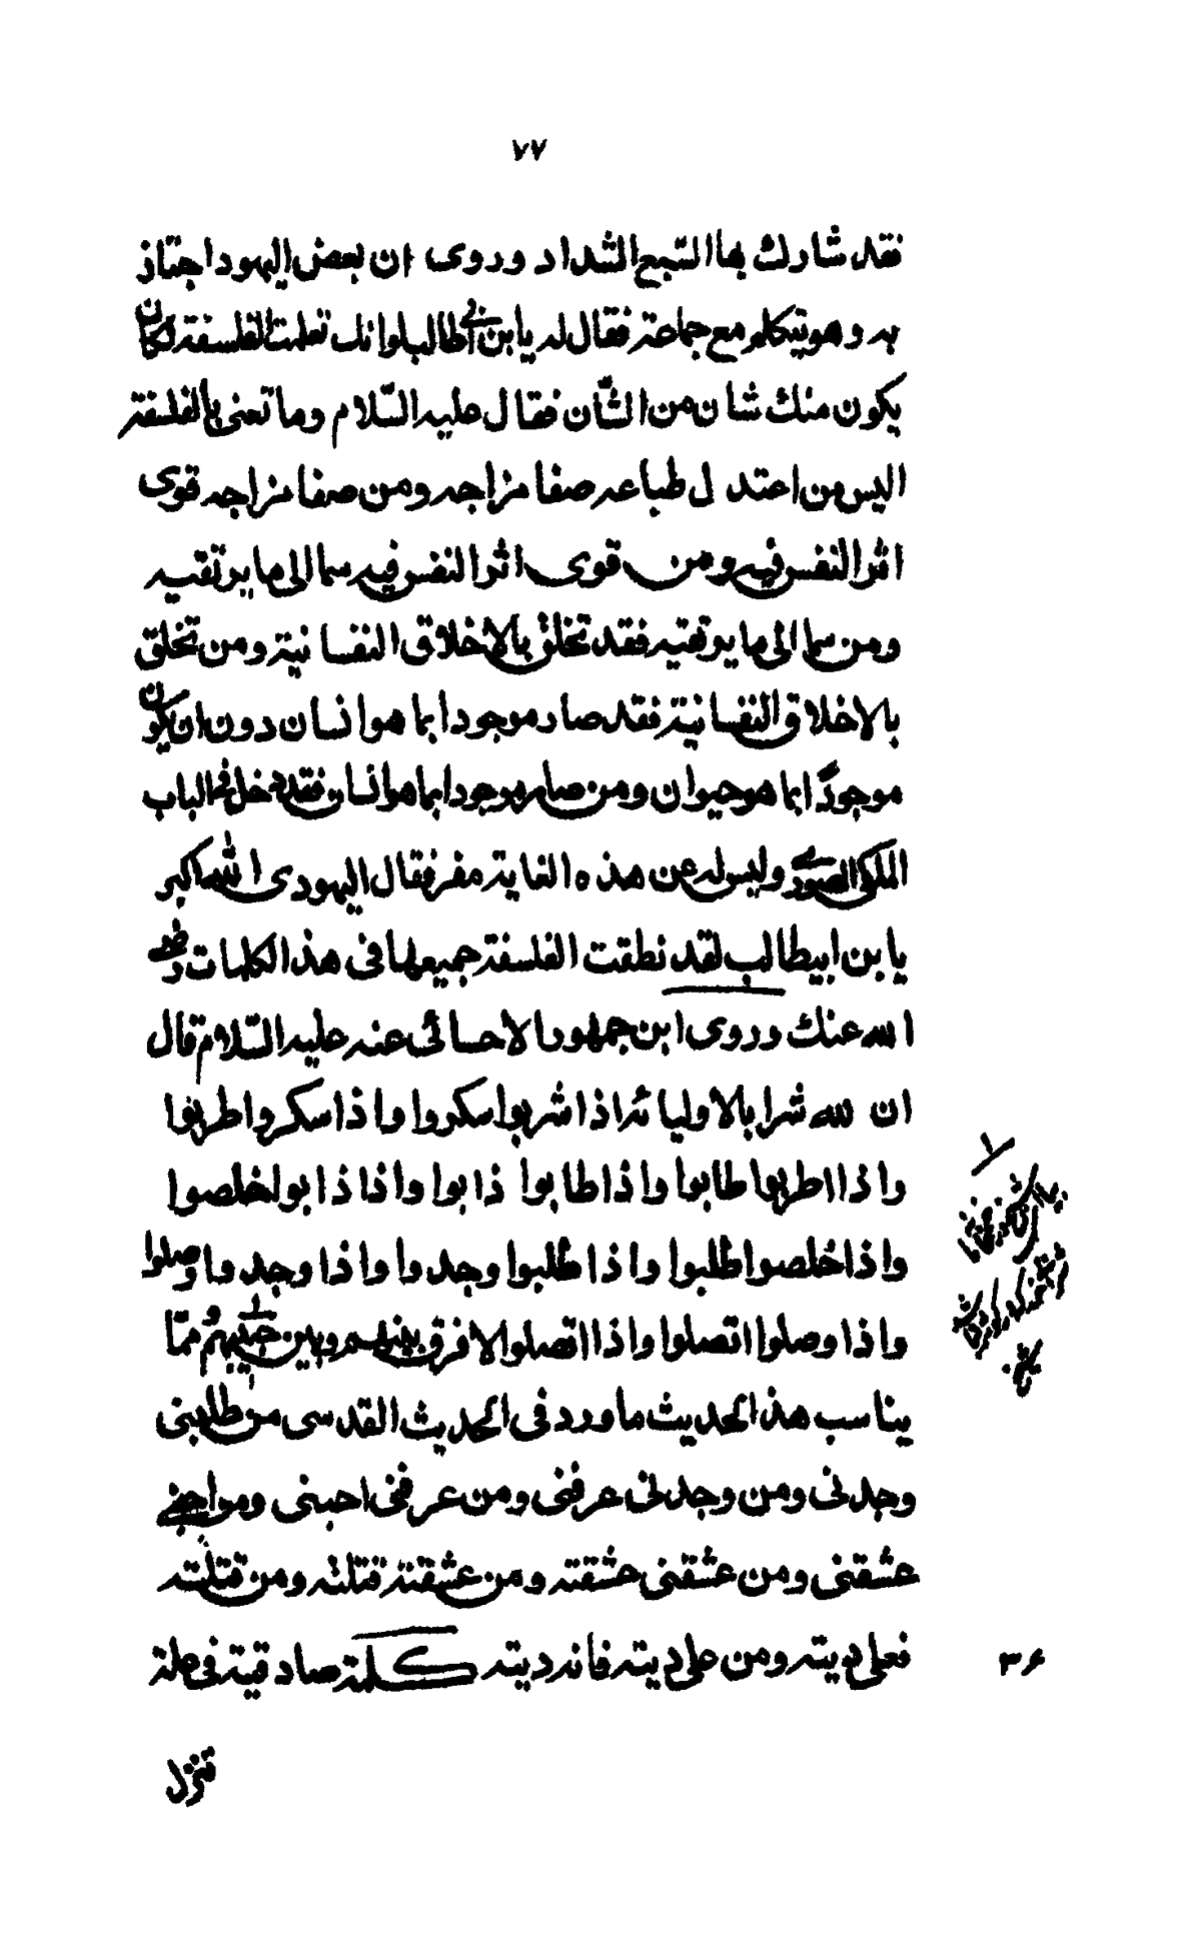 ٧٧
فقد شارك بها السّبع الشداد وروى ان بعض اليهود اجتاز
به وهو يتكلم مع جماعة فقال له يا بن ابي طالب لو انك تعلمت الفلسفة لكان
يكون منك شان من الشّان فقال عليه السّلام وما تعنى بالفلسفة
اليس من اعتدل طباعه صفا مزاجه ومن صفا مزاجه قوى
اثر النفس فيه ومن قوى اثر النفس فيه سما الى ما يرتقيه
ومن سما الى ما يرتقيه فقد تخلق بالاخلاق النفسانية ومن تخلق
بالاخلاق النفسانية فقد صار موجودا بما هو انسان دون ان يكون
موجودًا بما هو حيوان ومن صار موجودا بما هو انسان فقد دخل فى الباب
الملكى الصورى وليس له عن هذه الغاية مفر فقال اليهودى الله اكبر
يا بن ابيطالب لقد نطقت الفلسفة جميعها فى هذا الكلمات رضى
الله عنك وروى ابن جمهور الاحسائى عنه عليه السّلام قال
ان لله شرابا لاوليائه اذا شربوا سكروا واذا سكروا طربوا
واذا اطربوا طابوا واذا طابوا ذابوا واذا ذابوا خلصوا
واذا خلصوا طلبوا واذا طلبوا وجدوا واذا وجدوا وصلوا
واذا وصلوا اتصلوا واذا اتصلوا لا فرق بينهم وبين حبيبهم ممّا
يناسب هذا الحديث ما ورد فى الحديث القدسى من طلبنى
وجدنى ومن وجدنى عرفنى ومن عرفنى احبنى ومن احبنى
عشقنى ومن عشقنى عشقته ومن عشقته قتلته ومن قتلته
فعلى ديته ومن على ديته فانا ديته كلمة صادقية فى علة
٣۶
تنزل